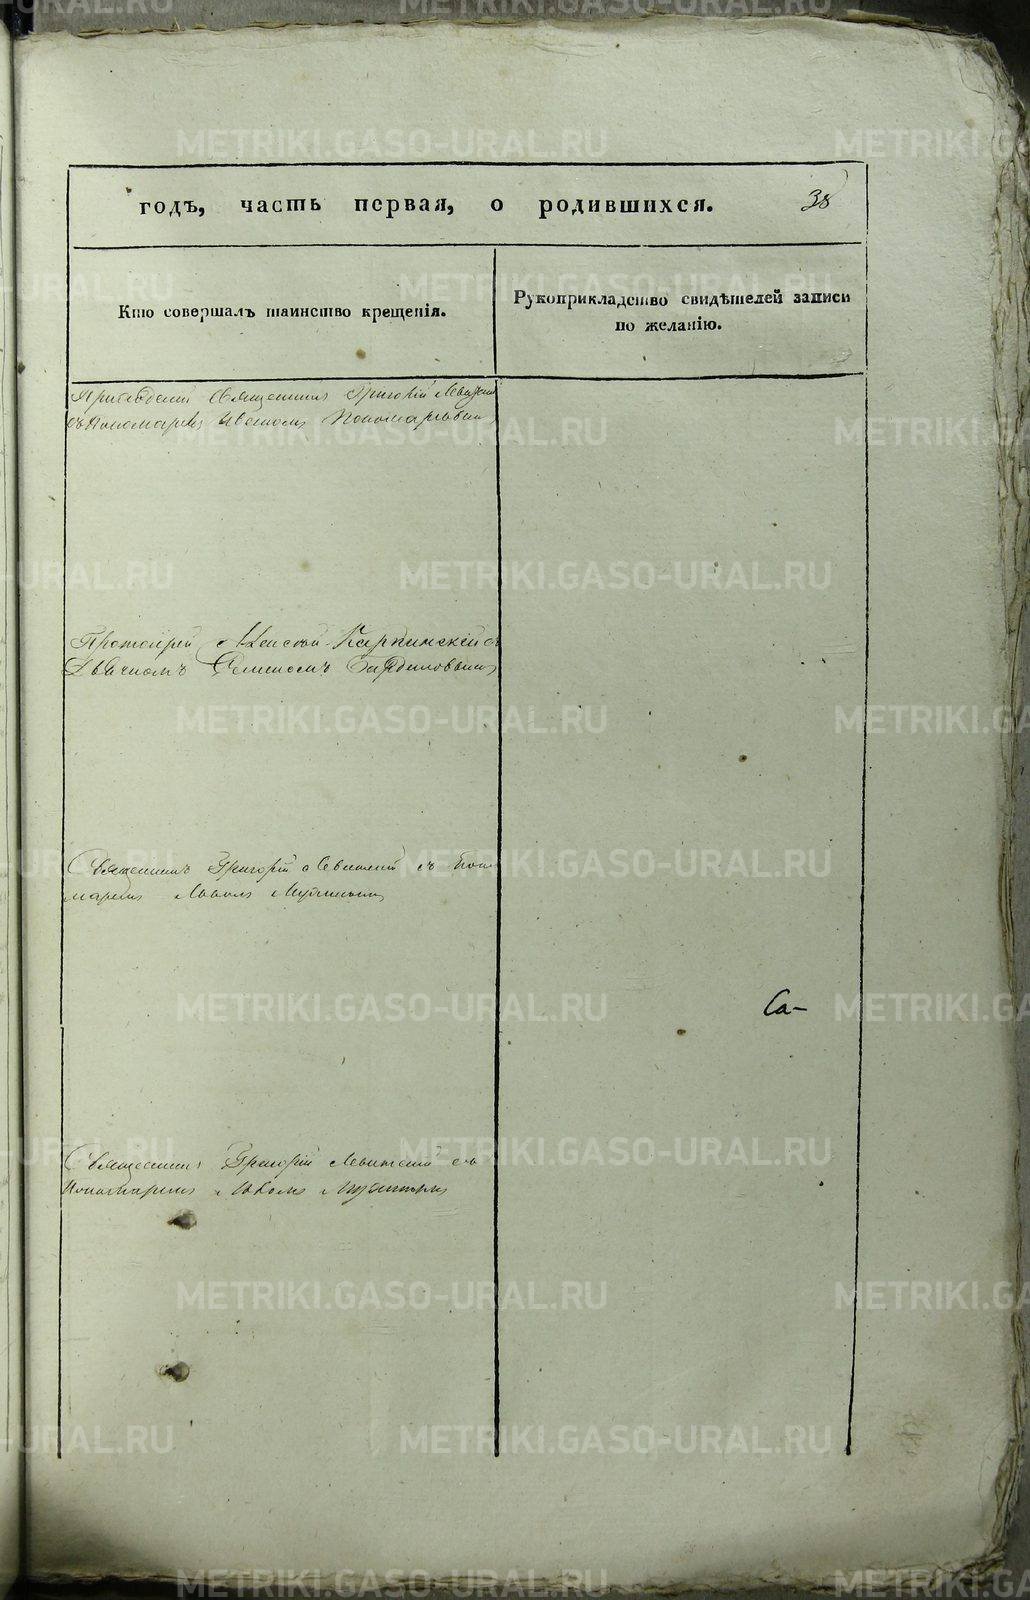 годъ, часть первая, о родившихся. 38
Кто совершалъ таинство крещенія.
Рукоприкладство свидѣтелей записи
по желанію.
Священникъ Григорій Левитскій
съ Пономаремъ Пономаревымъ
Протоіерей Алексѣй Карпинскій съ
Дьячкомъ Семеномъ
Священникъ Григорій Левитскій съ Поно-
маремъ
Са-
Священникъ Григорій Левитскій съ
Пономаремъ
METRIKI.GASO-URAL.RU